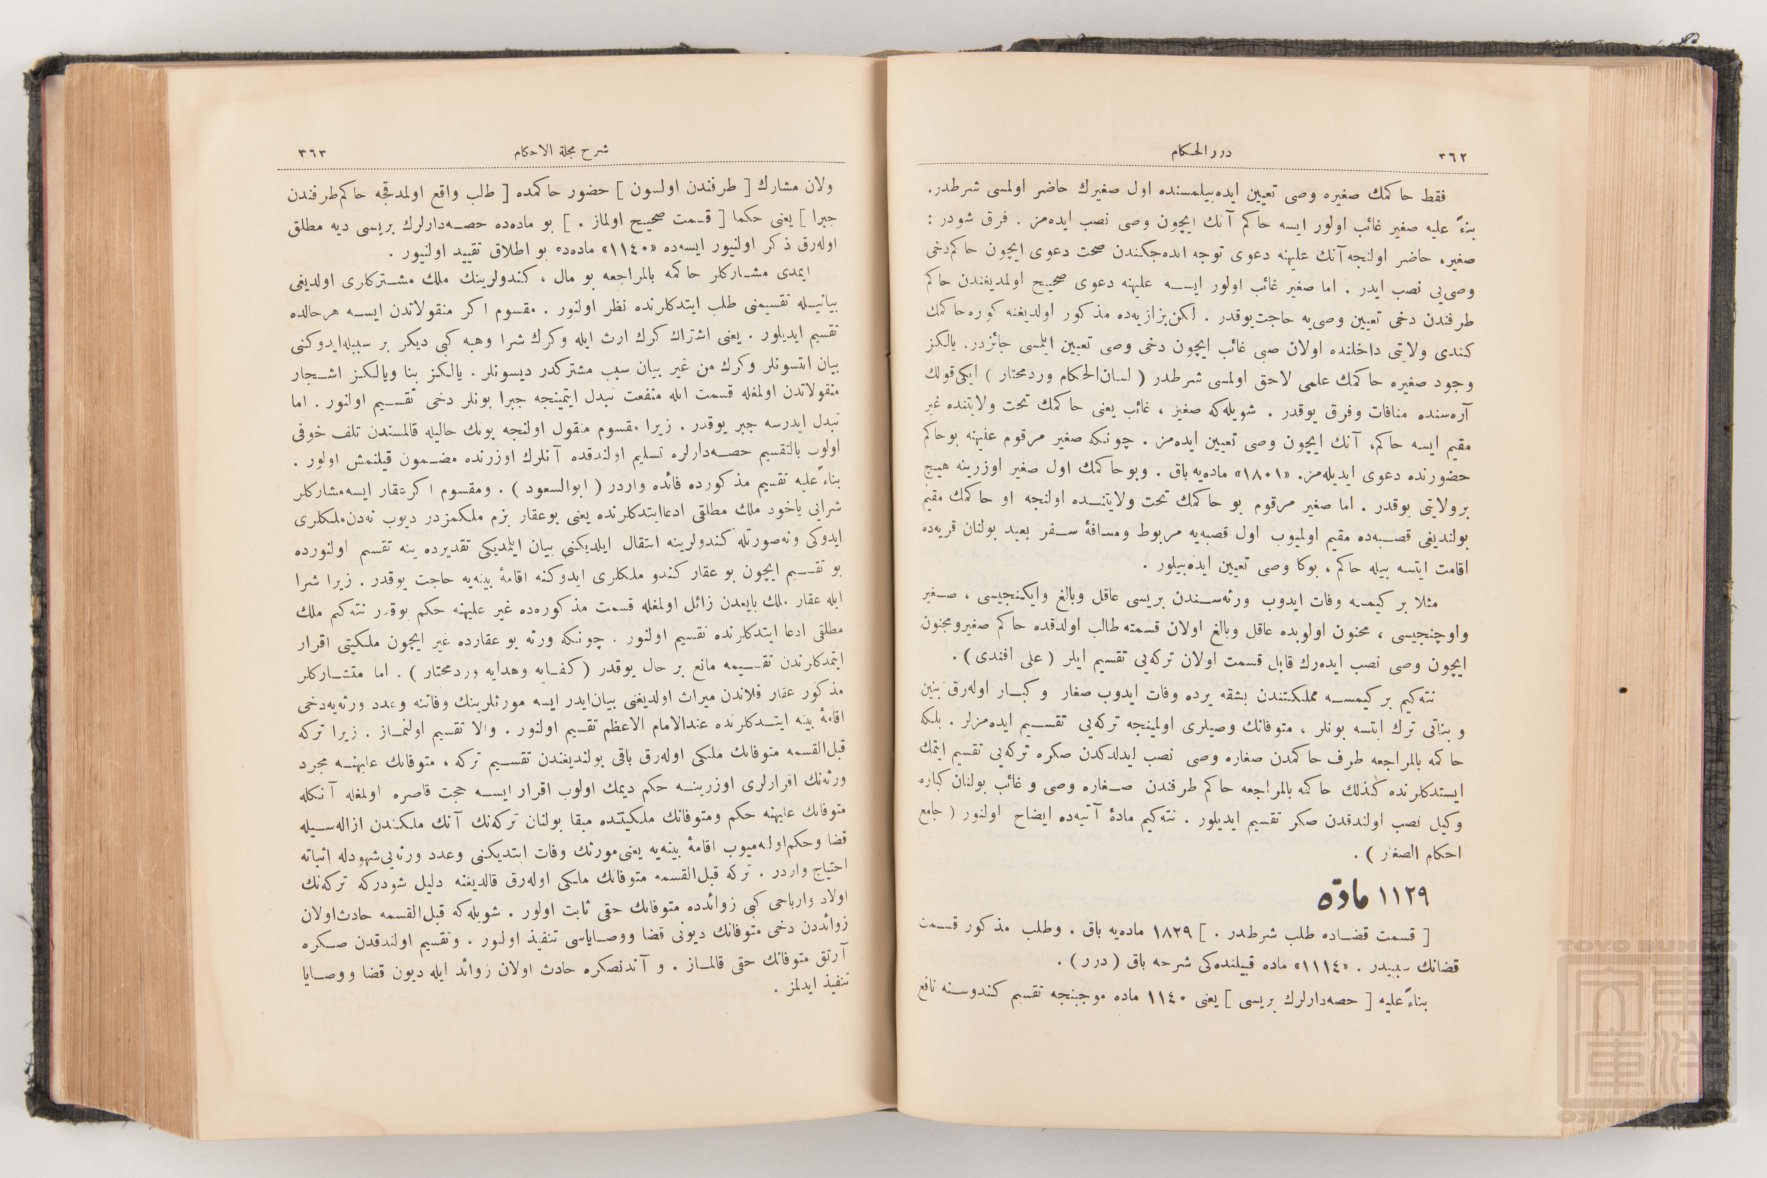 ٣٦٢
درر الحكام
فقط حاكمك صغيره وصى تعيين ايده‌بيلمسنده اول صغيرك حاضر اولمسى شرطدر.
بناءً عليه صغير غائب اولور ايسه حاكم آنك ايچون وصى نصب ايده‌مز . فرق شودر :
صغير، حاضر اولنجه آنك عليهنه دعوى توجه ايده‌جكندن صحت دعوى ايچون حاكم‌دخى
وصى‌يى نصب ايدر . اما صغير غائب اولور ايسه عليهنه دعوى صحيح اولمديغندن حاكم
طرفندن دخى تعيين وصى‌يه حاجت‌يوقدر . لكن‌بزازيه‌ده مذكور اولديغنه كوره‌حاكمك
كندى ولايتى داخلنده اولان صبى غائب ايچون دخى وصى تعيين ايلمسى جائزدر. يالكز
وجود صغيره حاكمك علمى لاحق اولمسى شرطدر ( لسان‌الحكام وردمحتار ) ايكى‌قولك
آره‌سنده منافات وفرق يوقدر . شويله‌كه صغير ، غائب يعنى حاكمك تحت ولايتنده غير
مقيم ايسه حاكم، آنك ايچون وصى تعيين ايده‌مز . چونكه صغير مرقوم عليهنه بوحاكم
حضورنده دعوى ايديله‌مز. «١٨٠١» ماده‌يه باق . وبوحاكمك اول صغير اوزرينه هيچ
برولايتى يوقدر . اما صغير مرقوم بو حاكمك تحت ولايتنده اولنجه او حاكمك مقيم
بولنديغى قصبه‌ده مقيم اولميوب اول قصبه‌يه مربوط ومسافهٔ سفر بعيد بولنان قريه‌ده
اقامت ايتسه بيله حاكم ، بوكا وصى تعيين ايده‌بيلور .
مثلا بر كيمسه وفات ايدوب ورثه‌سندن بريسى عاقل وبالغ وايكنجيسى ، صغير
واوچنجيسى ، مجنون اولوبده عاقل وبالغ اولان قسمته طالب اولدقده حاكم صغيرومجنون
ايچون وصى نصب ايده‌رك قابل قسمت اولان تركه‌يى تقسيم ايلر ( على افندى ) .
نته‌كيم بر كيمسه مملكتندن بشقه يرده وفات ايدوب صغار وكبار اوله‌رق بنين
و بناتى ترك ايتسه بونلر ، متوفانك وصيلرى اولمينجه تركه‌يى تقسيم ايده‌مزلر . بلكه
حاكمه بالمراجعه طرف حاكمدن صغاره وصى نصب ايدلدكدن صكره تركه‌يى تقسيم ايتمك
ايستدكلرنده كذلك حاكمه بالمراجعه حاكم طرفندن صغاره وصى و غائب بولنان كباره
وكيل نصب اولندقدن صكر تقسيم ايديلور . نته‌كيم مادهٔ آتيه‌ده ايضاح اولنور ( جامع
احكام الصغار ) .
١١٢٩ مادّه
[ قسمت قضاده طلب شرطدر . ] ١٨٢٩ ماده‌يه باق . وطلب مذكور قسمت
قضانك سببيدر . «١١١٤» ماده قبيلنده‌كى شرحه باق ( درر ) .
بناءً عليه [ حصه‌دارلرك بريسى ] يعنى ١١٤٠ ماده موجبنجه تقسيم كندوسنه نافع
٣٦٣
شرح مجلة الاحكام
ولان مشارك [ طرفندن اولسون ] حضور حاكمده [ طلب واقع اولمدقجه حاكم‌طرفندن
جبرا ] يعنى حكما [ قسمت صحيح اولماز . ] بو ماده‌ده حصه‌دارلرك بريسى ديه مطلق
اوله‌رق ذكر اولنيور ايسه‌ده «١١٤٠» ماده‌ده بو اطلاق تقييد اولنيور .
ايمدى مشاركلر حاكمه بالمراجعه بو مال ، كندولرينك ملك مشتركلرى اولديغى
بيانيله تقسيمنى طلب ايتدكلرنده نظر اولنور . مقسوم اكر منقولاتدن ايسه هرحالده
تقسيم ايديلور . يعنى اشتراك كرك ارث ايله وكرك شرا وهبه كبى ديكر بر سببله‌ايدوكنى
بيان ايتسونلر وكرك من غير بيان سبب مشتركدر ديسونلر . يالكز بنا ويالكز اشجار
منقولاتدن اولمغله قسمت ايله منفعت تبدل ايتمينجه جبرا بونلر دخى تقسيم اولنور . اما
تبدل ايدرسه جبر يوقدر . زيرا مقسوم منقول اولنجه بونك حاليله قالمسندن تلف خوفى
اولوب بالتقسيم حصه‌دارلره تسليم اولندقده آنلرك اوزرنده مضمون قيلنمش اولور .
بناءً عليه تقسيم مذكورده فائده واردر ( ابوالسعود ) . ومقسوم اكرعقار ايسه‌مشاركلر
شرايى ياخود ملك مطلقى ادعاايتدكلرنده يعنى بوعقار بزم ملكمزدر ديوب نه‌دن‌ملكلرى
ايدوكى ونه‌صورتله كندولرينه انتقال ايلديكنى بيان ايلمديكى تقديرده ينه تقسيم اولنورده
بو تقسيم ايچون بو عقار كندو ملكلرى ايدوكنه اقامهٔ بينه‌يه حاجت يوقدر . زيرا شرا
ايله عقار ملك بايعدن زائل اولمغله قسمت مذكوره‌ده غير عليهنه حكم يوقدر نته‌كيم ملك
مطلقى ادعا ايتدكلرنده تقسيم اولنور . چونكه ورثه بو عقارده غير ايچون ملكيتى اقرار
ايتمدكلرندن تقسيمه مانع بر حال يوقدر ( كفايه وهدايه وردمحتار ) . اما متشاركلر
مذكور عقار فلاندن ميراث اولديغنى بيان‌ايدر ايسه مورثلرينك وفاتنه وعدد ورثه‌يه‌دخى
اقامهٔ بينه ايتدكلرنده عندالامام الاعظم تقسيم اولنور . والا تقسيم اولنماز . زيرا تركه
قبل‌القسمه متوفانك ملكى اوله‌رق باقى بولنديغندن تقسيم تركه ، متوفانك عليهنه مجرد
ورثه‌نك اقرارلرى اوزرينه حكم ديمك اولوب اقرار ايسه حجت قاصره اولمغله آنكله
متوفانك عليهنه حكم ومتوفانك ملكيتنده مبقا بولنان تركه‌نك آنك ملكندن ازاله‌سيله
قضا وحكم‌اوله‌ميوب اقامهٔ بينه‌يه يعنى‌مورثك وفات ايتديكنى وعدد ورثه‌يى‌شهودله اثباته
احتياج واردر . تركه قبل‌القسمه متوفانك ملكى اوله‌رق قالديغنه دليل شودركه تركه‌نك
اولاد وارباحى كبى زوائدده متوفانك حقى ثابت اولور . شويله‌كه قبل‌القسمه حادث‌اولان
زوائددن دخى متوفانك ديونى قضا ووصاياسى تنفيذ اولنور . وتقسيم اولندقدن صكره
آرتق متوفانك حقى قالماز . و آندنصكره حادث اولان زوائد ايله ديون قضا ووصايا
تنفيذ ايدلمز .
TOYO BUNKO